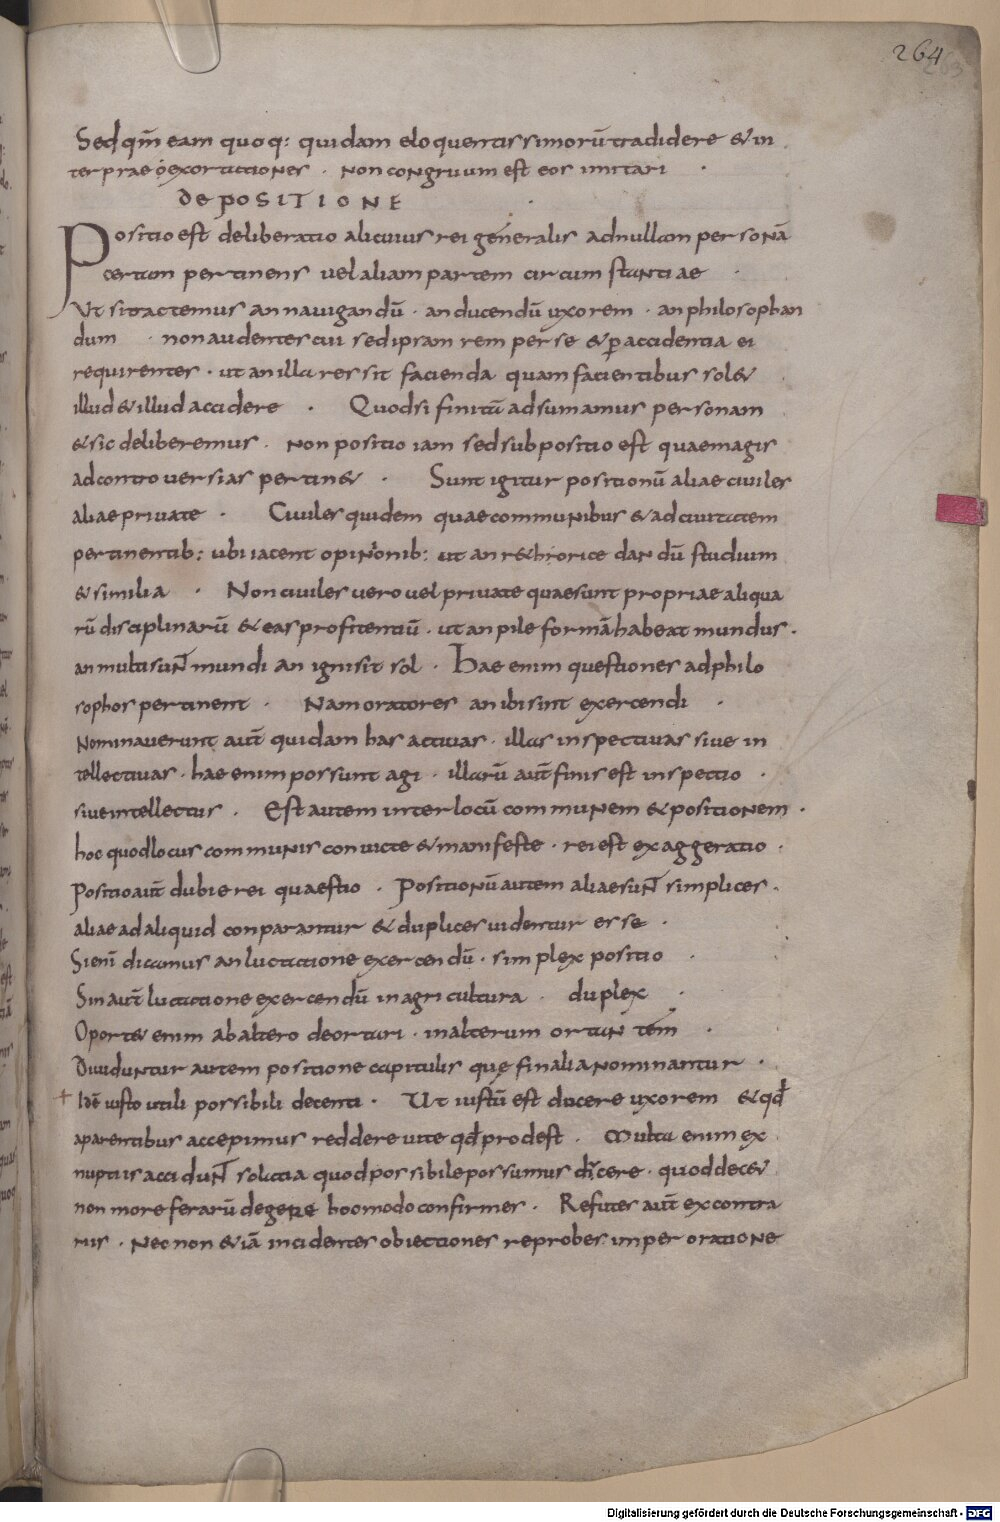 264
Sed qm̄ eam quoq: quidam eloquentissimorū tradidere & in
terprae exortationes . non congruum est eos imitari .
De POSITIONE
Positio est deliberatio alicuius rei generalis ad nullam personā
certam pertinens vel aliam partem circumstantiae .
Ut si tractemus an nauigandū . an ducendū uxorem . an philosophan
dum . non audenter cui sed ipsam rem per se & p accidentia ei
requirentes . ut an illa res sit facienda quam facientibus sol&
illud & illud accidere . Quod si finitā adsumamus personam
& sic deliberemus . Non positio iam sed subpositio est quae magis
ad controuersias pertin& . Sunt igitur positionū aliae ciuiles
aliae priuate . Ciuiles quidem quae communibus & ad ciuitatem
pertinentib: ubi iacent opinionib: ut an r&hrorice dandū studium
& similia . Non ciuiles uero uel priuate quae sunt propriae aliqua
rū disciplinarū & eas profitentiū . ut an pile formā habeat mundus .
an multi sunt mundi an ignis sit sol . Hae enim questiones ad philo
sophos pertinent . Nam oratores an ibi sint exercendi .
Nominauerunt aut̄ quidam has actiuas . illas inspectiuas siue in
tellectiuas . hae enim possunt agi . illarū aut̄ finis est inspectio .
siue intellectus . Est autem inter locū communem & positionem .
hoc quod locus communis conuicte & manifeste . rei est exaggeratio .
Positio aut̄ dubie rei quaestio . Positionū autem aliae sunt simplices .
aliae ad aliquid conparantur & duplices uidentur esse .
Si eni dicamus an luctatione exercendū . simplex positio .
Sin aut̄ luctatione exercendū in agricultura . duplex .
Oport& enim ab altero deortari . in alterum ortan tem .
Diuiduntur autem positione capitulis quę finalia nominantur .
id ē iusto utili possibili decenti . Ut iustū est ducere uxorem & qd
aparentibus accepimus reddere uite qd prodest . Multa enim ex
nuptiis accidunt solatia quod possibile possumus dicere . quod dec&
non more ferarū degere hoc modo confirmes . Refutes aut̄ ex contra
riis . Nec non & iā incidentes obiectiones reprobes imper oratione
Digitalisierung gefördert durch die Deutsche Forschungsgemeinschaft - DFG